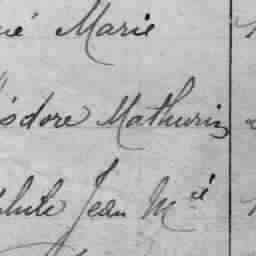 né Marie
isidore Mathurin
Jean Mie